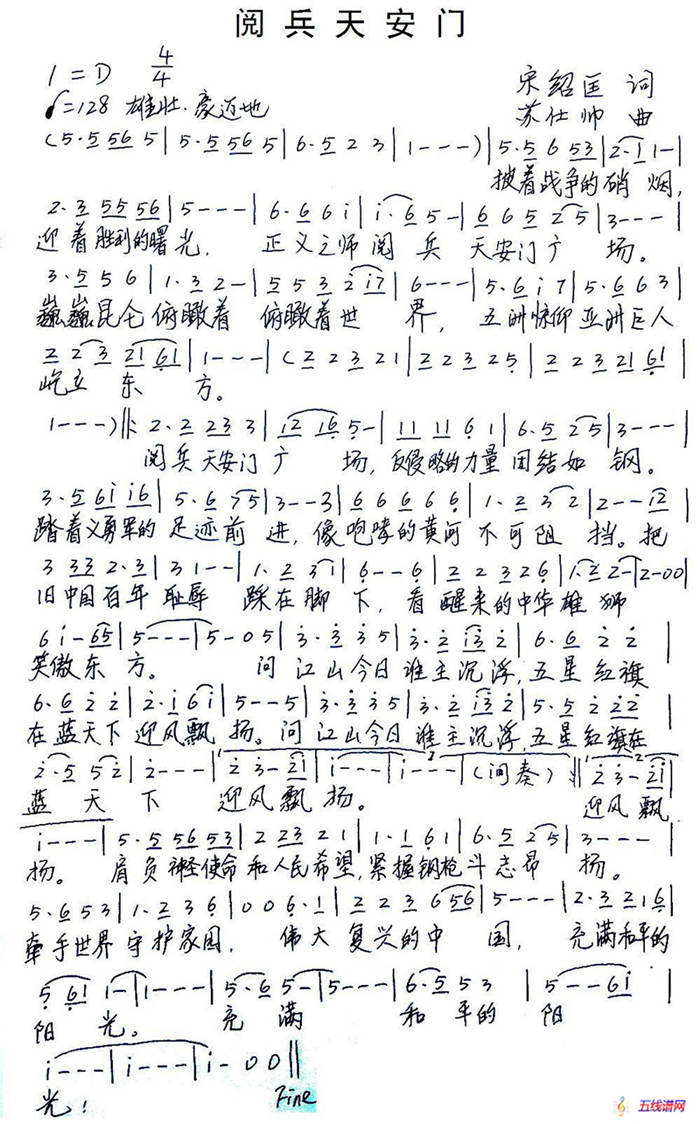 阅兵天安门
1=D 4/4
宋绍匡 词
♩=128 雄壮.豪迈地
苏仕帅 曲
(5·5 56 5 | 5·5 56 5 | 6·5 2 3 | 1---) | 5·5 6 53 | 2·1 1- |
披着战争的硝烟,
2·3 55 56 | 5--- | 6·6 6 i | i·6 5- | 6 6 5 2 5 | 3--- |
迎着胜利的曙光, 正义之师阅兵 天安门广场。
3·5 5 6 | 1·3 2- | 5 5 3 2 i7 | 6--- | 5·6 i 7 | 5·6 6 3 |
巍巍昆仑俯瞰着 俯瞰着世界, 五洲惊仰亚洲巨人
2 2 3 21 61 | 1--- | (2 2 3 21 | 2 2 3 25 | 2 2 3 21 61 |
屹立东方。
1---) ‖: 2·2 23 3 | 12 16 5- | 11 11 6 1 | 6·5 2 5 | 3--- |
阅兵天安门广场, 反侵略的力量团结如钢。
3·5 6i i6 | 5·6 75 | 3--3 | 6 6 6 6 6 | 1·2 3 2 | 2--12 |
踏着义勇军的足迹前进, 像咆哮的黄河不可阻挡。把
3 33 2·3 | 3 1-- | 1·2 3 1 | 6--6 | 2 2 3 2 6 | 1·2 2- | 2-00 |
旧中国百年耻辱 踩在脚下, 看醒来的中华雄狮
6 i-65 | 5--- | 5-05 | 3·3 3 5 | 3·2 i3 2 | 6·6 2 2 |
笑傲东方。 问江山今日谁主沉浮,五星红旗
6·6 2 2 | 2·i 6 i | 5--5 | 3·3 3 5 | 3·2 i3 2 | 5·5 2 22 |
在蓝天下迎风飘扬。问江山今日谁主沉浮,五星红旗在
2·5 5 2 | 2--- | 2 3-2i | i--- | i--- | (间奏) :‖ 2 3-2i |
蓝天下 迎风飘扬。 迎风飘
i--- | 5·5 56 53 | 2 23 2 1 | 1·1 6 1 | 6·5 2 5 | 3--- |
扬。 肩负神圣使命和人民希望,紧握钢枪斗志昂扬。
5·6 5 3 | 1·2 3 6 | 0 0 6·1 | 2 2 3 6 56 | 5--- | 2·3 21 6 |
牵手世界守护家园, 伟大复兴的中国, 充满和平的
5 61 i- | i--- | 5·6 5- | 5--- | 6·5 5 3 | 5--6i |
阳光。 充满 和平的 阳
i--- | i--- | i-00 ‖
光! Fine
五线谱网